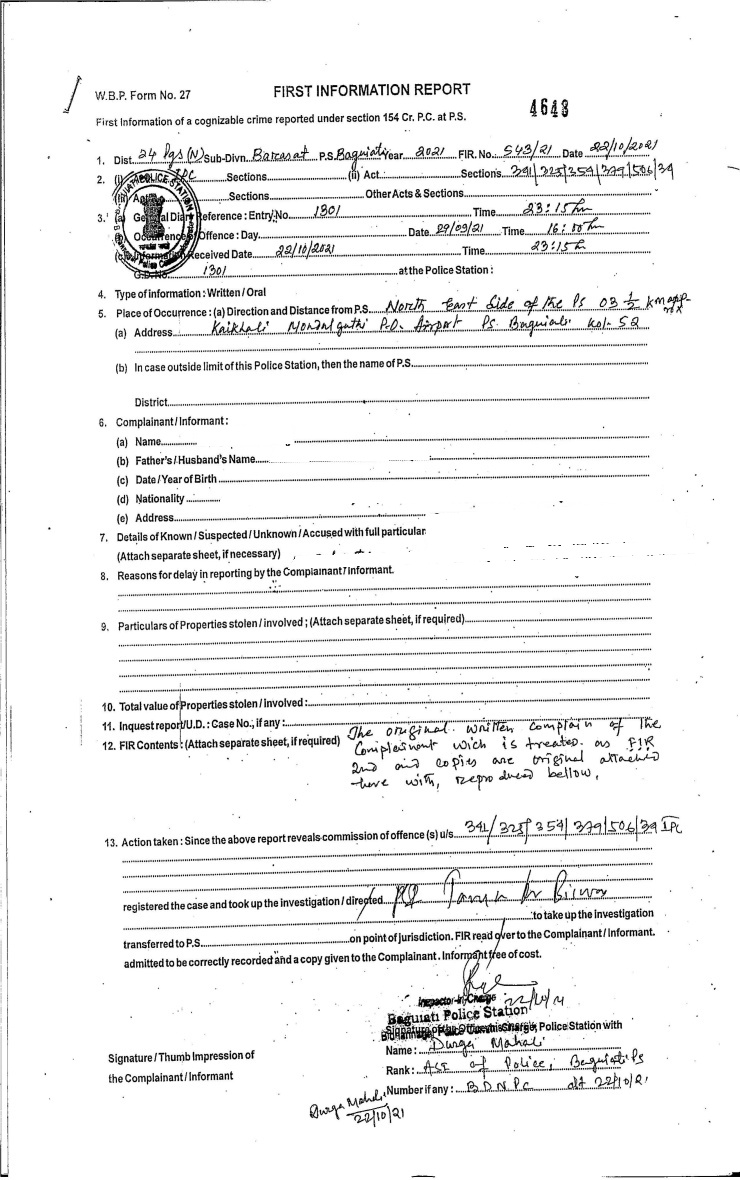 W.B.P. Form No. 27
FIRST INFORMATION REPORT
4643
First Information of a cognizable crime reported under section 154 Cr. P.C. at P.S.
1. Dist. 24 Pgs (N) Sub-Divn. Barasat P.S. Baguiati Year 2021 FIR. No. 543/21 Date 22/10/2021
2. (i) IPC Sections (ii) Act Sections 341/325/354/379/506/34
Sections Other Acts & Sections
3. (a) General Diary Reference : Entry No. 1301 Time 23:15 hr
Occurrence of Offence : Day Date 29/09/21 Time 16:00 hr
(c) Information Received Date 22/10/2021 Time 23:15 h
G.D. No. 1301 at the Police Station :
4. Type of information : Written / Oral
5. Place of Occurrence : (a) Direction and Distance from P.S. North East Side of the PS 03 ½ km app-
rox
(a) Address Kaikhali Mondalganthi P.O. Airport PS. Baguiati Kol- 52
(b) In case outside limit of this Police Station, then the name of P.S.
District
6. Complainant / Informant :
(a) Name
(b) Father's / Husband's Name
(c) Date / Year of Birth
(d) Nationality
(e) Address
7. Details of Known / Suspected / Unknown / Accused with full particular
(Attach separate sheet, if necessary)
8. Reasons for delay in reporting by the Complainant / Informant.
9. Particulars of Properties stolen / involved ; (Attach separate sheet, if required)
10. Total value of Properties stolen / Involved :
11. Inquest report/U.D. : Case No., if any :
12. FIR Contents : (Attach separate sheet, if required) The original written complain of the
Complainont wich is treated as FIR
2nd and copies are original attached
here with, reproduced bellow,
13. Action taken : Since the above report reveals commission of offence (s) u/s 341/325/354/379/506/34 IPC
registered the case and took up the investigation / directed
to take up the investigation
transferred to P.S. on point of jurisdiction. FIR read over to the Complainant / Informant.
admitted to be correctly recorded and a copy given to the Complainant. Informant free of cost.
Inspector-in-Charge 22/10/21
Baguiati Police Station
Signature of the Officer in Charge, Police Station with
Name : Durga Mahali
Signature / Thumb Impression of
the Complainant / Informant
Rank : ASI of Police, Baguiati PS
Number if any : B.D.N.P.C dt 22/10/21
Durga Mahali
22/10/21